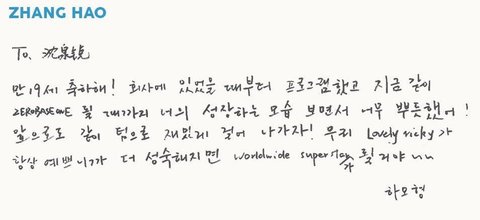 ZHANG HAO
To. 沈泉锐
만 19세 축하해! 회사에 있었을 때부터 프로그램했고 지금 같이
ZEROBASEONE 될 때까지 너의 성장하는 모습 보면서 너무 뿌듯했어!
앞으로도 같이 팀으로 재밌게 걸어 나가자! 우리 Lovely ricky가
항상 예쁘니까 더 성숙해지면 worldwide superstar가 될 거야 ㄴㄴ
하오형